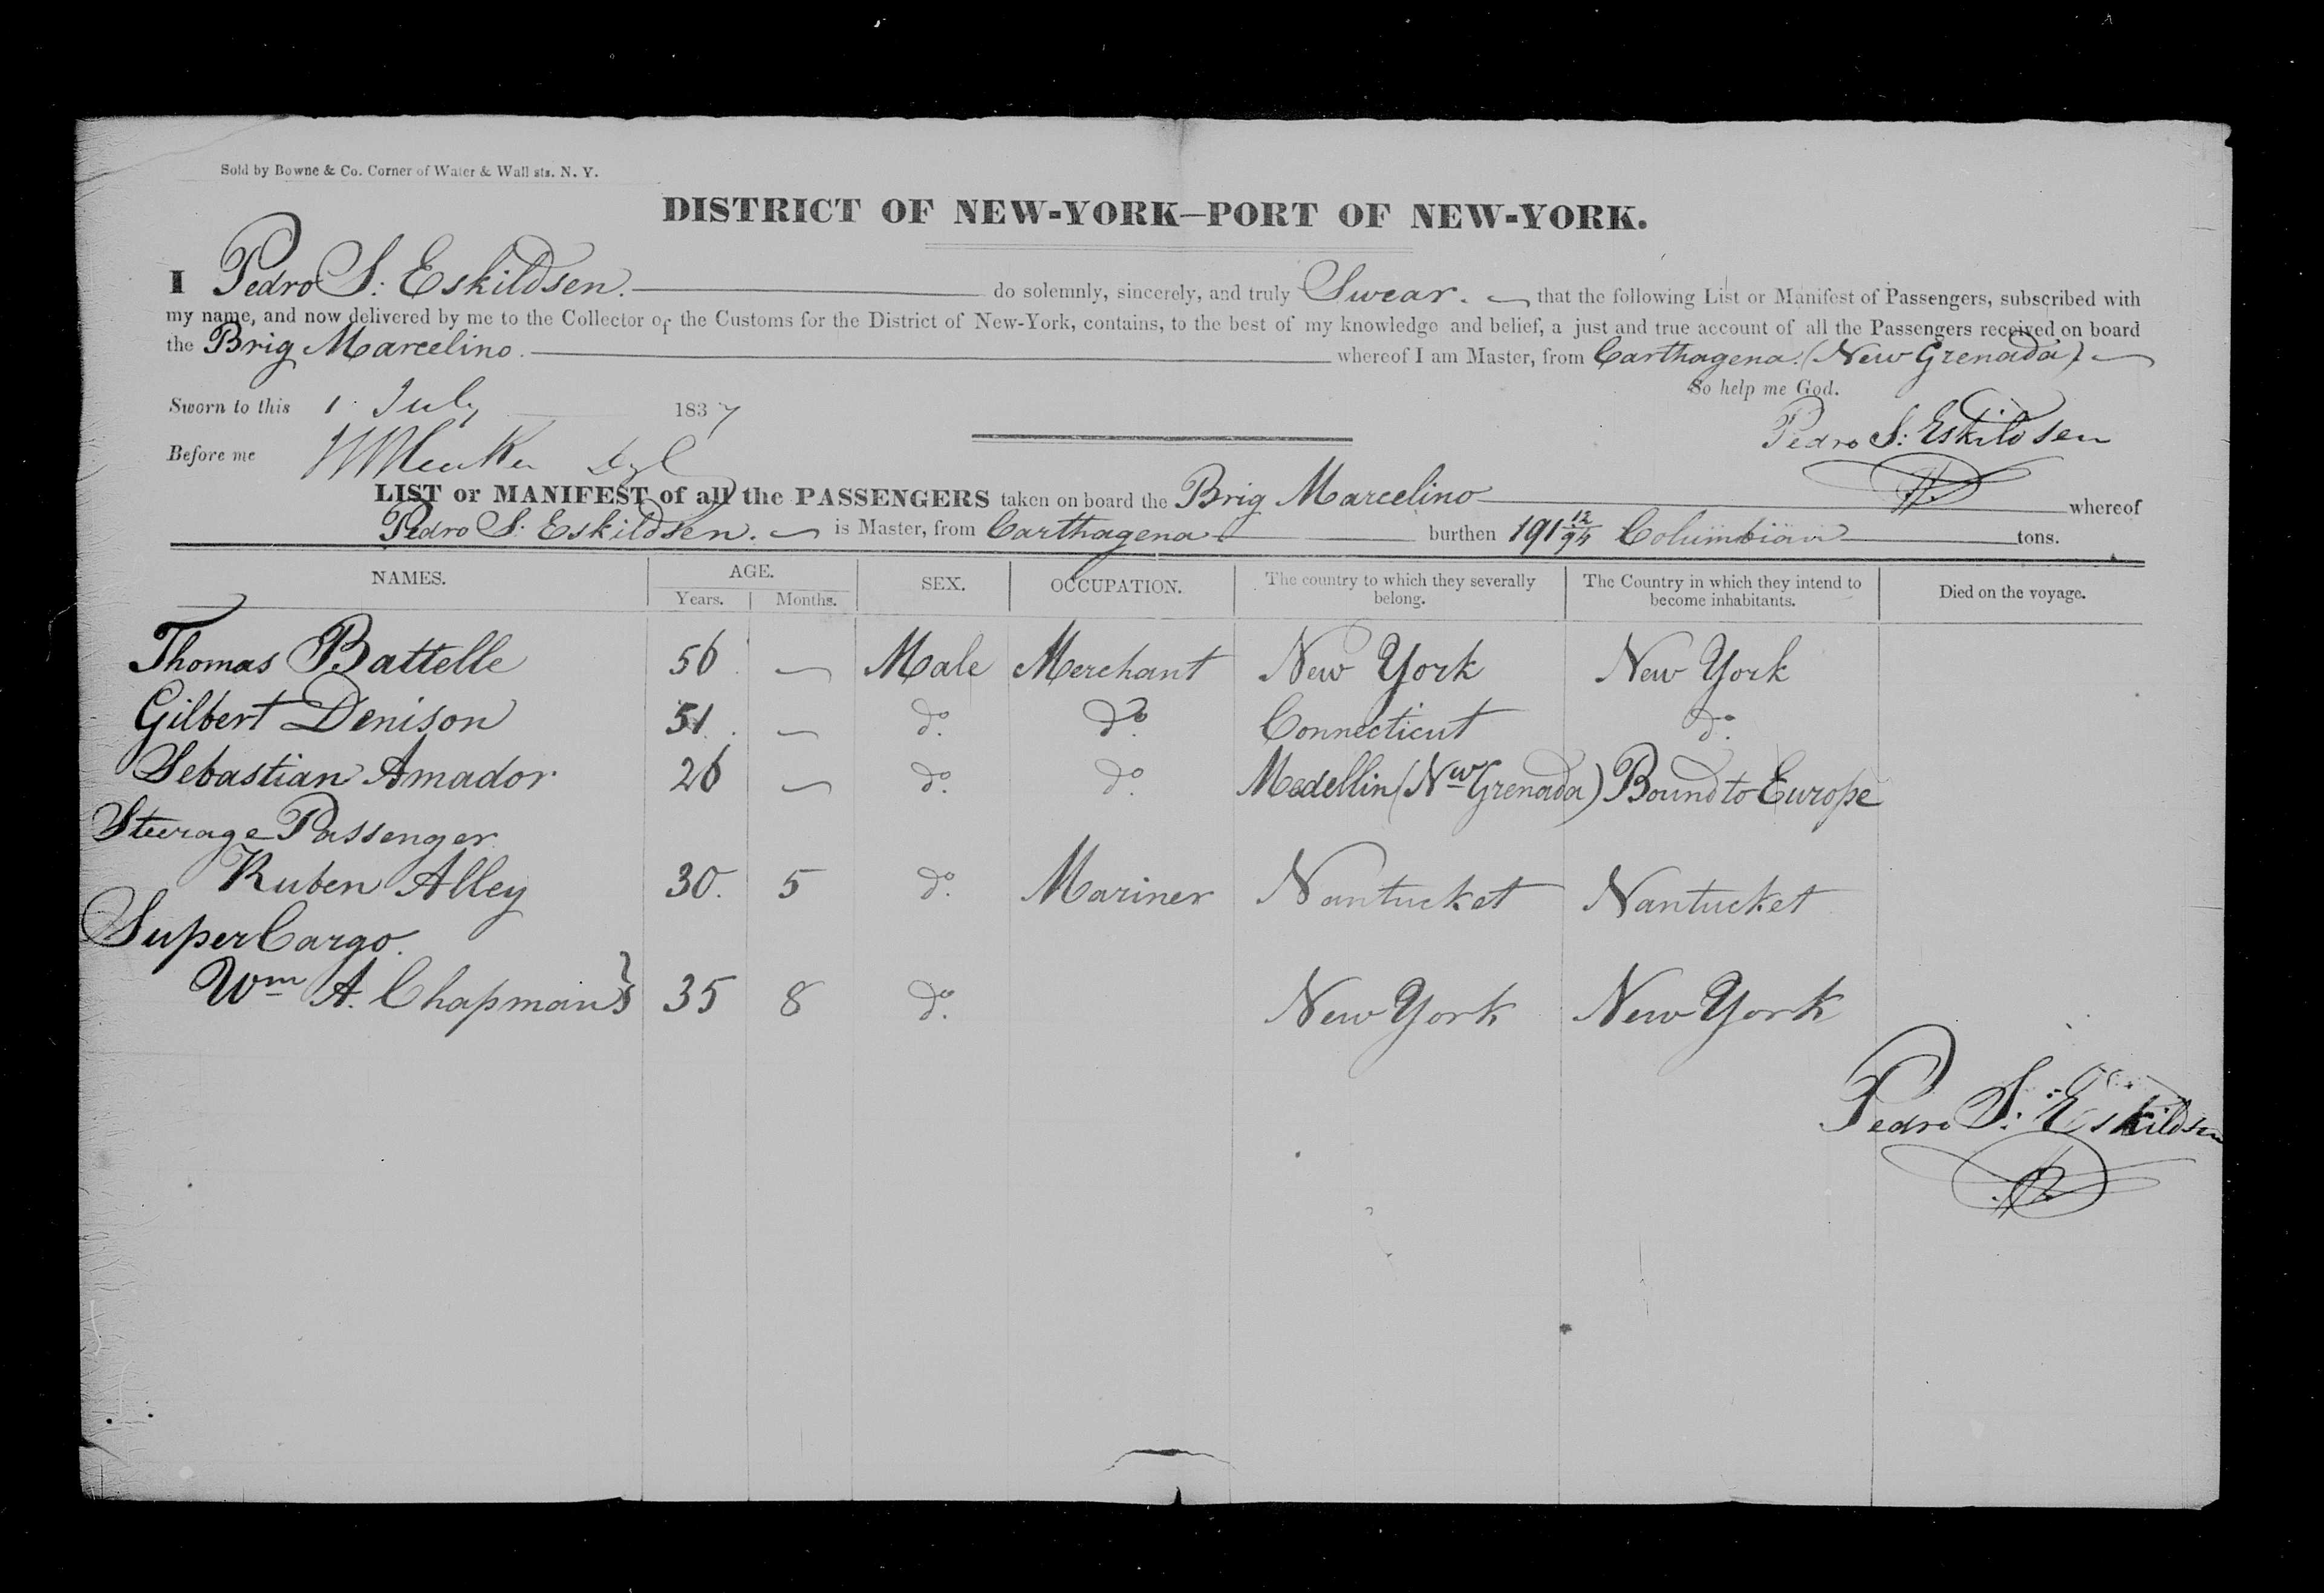 Sold by Bowne & Co. Corner of Water & Wall sts. N. Y.
DISTRICT OF NEW-YORK—PORT OF NEW-YORK.
I Pedro S: Eskildsen. do solemnly, sincerely, and truly Swear. that the following List or Manifest of Passengers, subscribed with
my name, and now delivered by me to the Collector of the Customs for the District of New-York, contains, to the best of my knowledge and belief, a just and true account of all the Passengers received on board
the Brig Marcelino. whereof I am Master, from Carthagena. (New Grenada)
So help me God.
Sworn to this 1 July 1837
Pedro S: Eskildsen
Before me
LIST or MANIFEST of all the PASSENGERS taken on board the Brig Marcelino whereof
Pedro S: Eskildsen. is Master, from Carthagena burthen 191 12/95 Columbian tons.
NAMES. AGE. SEX. OCCUPATION. The country to which they severally belong. The Country in which they intend to become inhabitants. Died on the voyage.
Years. Months.
Thomas Battelle 56 — Male Merchant New York New York
Gilbert Denison 51. — do. do. Connecticut do.
Sebastian Amador 26 — do. do. Medellin (Nw Grenada) Bound to Europe
Steerage Passenger
Ruben Alley 30. 5 do. Mariner Nantucket Nantucket
SuperCargo.
Wm A. Chapman } 35 8 do. New York New York
Pedro S: Eskildsen